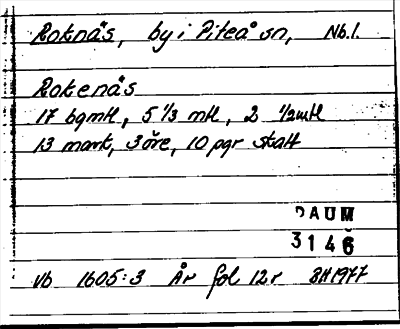 Roknäs, by i Piteå sn, Nb.l.
Rokenäs
17 bgmtl, 5 1/3 mtl, 2 1/2mtl
13 mark, 3 öre, 10 pgr skatt
DAUM
3146
Vb 1605:3 År fol 12r BH1977